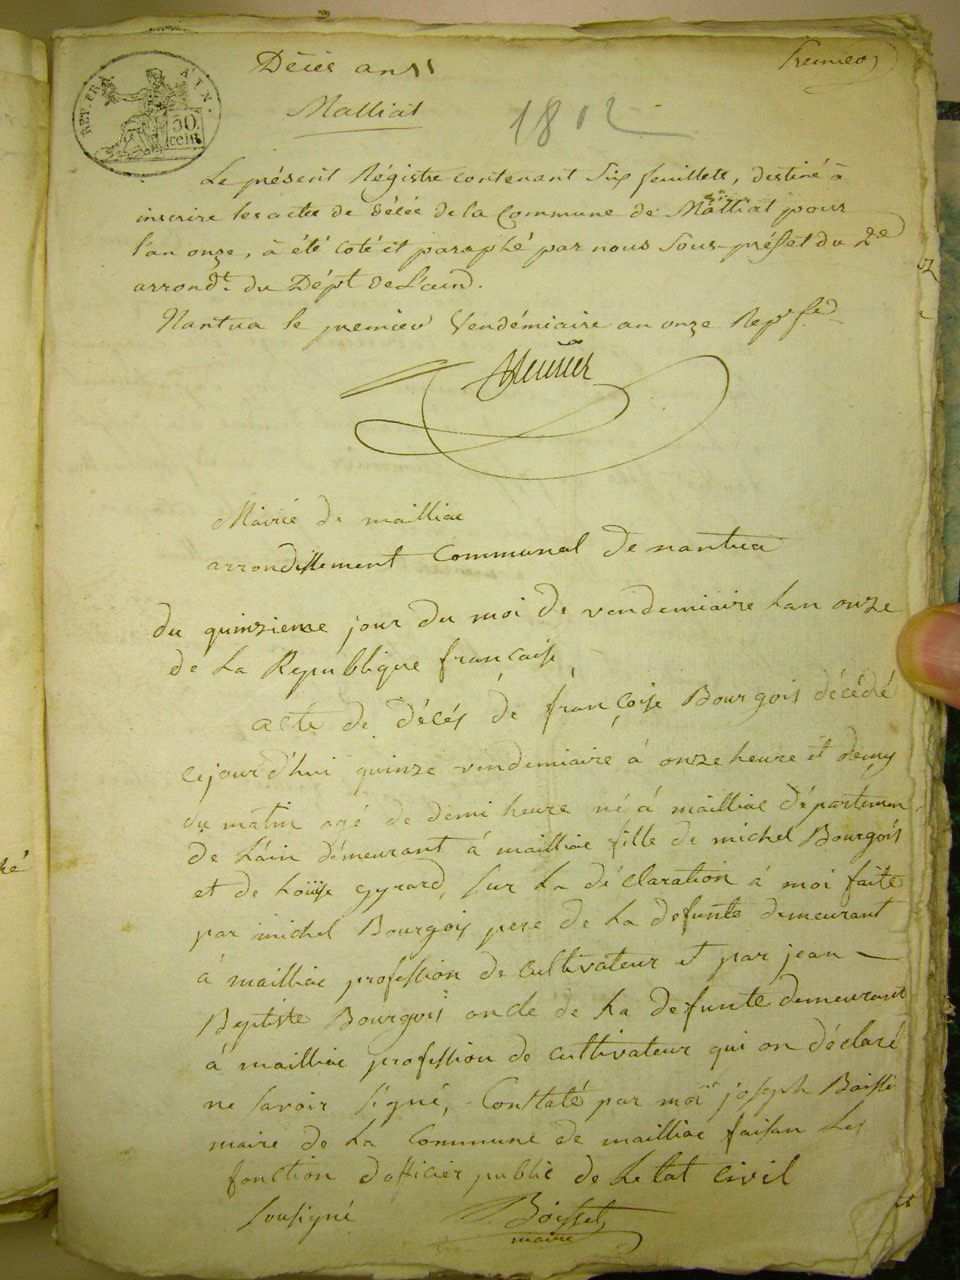 Décès an 11
premier
Malliat
1802
REP. FRA. AIN.
50 cent
Le présent Régistre contenant Six feuillets, destiné à
inscrire les actes de décès de la Commune de Malliat pour
l'an onze, à été coté et paraphé par nous Sous-préfet du 2e
arrondt. du Dépt de L'ain.
Nantua le premier Vendémiaire an onze
Mairié de mailliac
arrondissement Communal de nantua
du quinzieme jour du moi de vendemiaire Lan onze
de La Republique francaise
acte de décés de françoise Bourgois décédé
cejourd'hui quinze vendemiaire à onze heure et demy
du matin agé de demi heure né á mailliac départemen
de Láin démeurant á mailliac fille de michel Bourgois
et de Loüise gyrard, sur La déclaration á moi faite
par michel Bourgois pere de La defunte demeurant
á mailliac profession de cultivateur et par jean
Beptiste Bourgois oncle de La defunte demeurant
á mailliac profession de cultivateur qui on déclaré
ne savoir signé, Constaté par moi joseph
maire de La Commune de mailliac faisan Les
fonction dofficier public de Letat civil
sousigné
maire